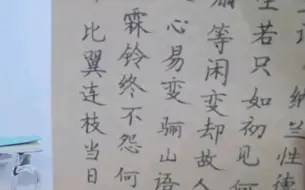 纳兰性德
生若只如初见何
扇等闲变却故人
心易变骊山语
霖铃终不怨何
比翼连枝当日